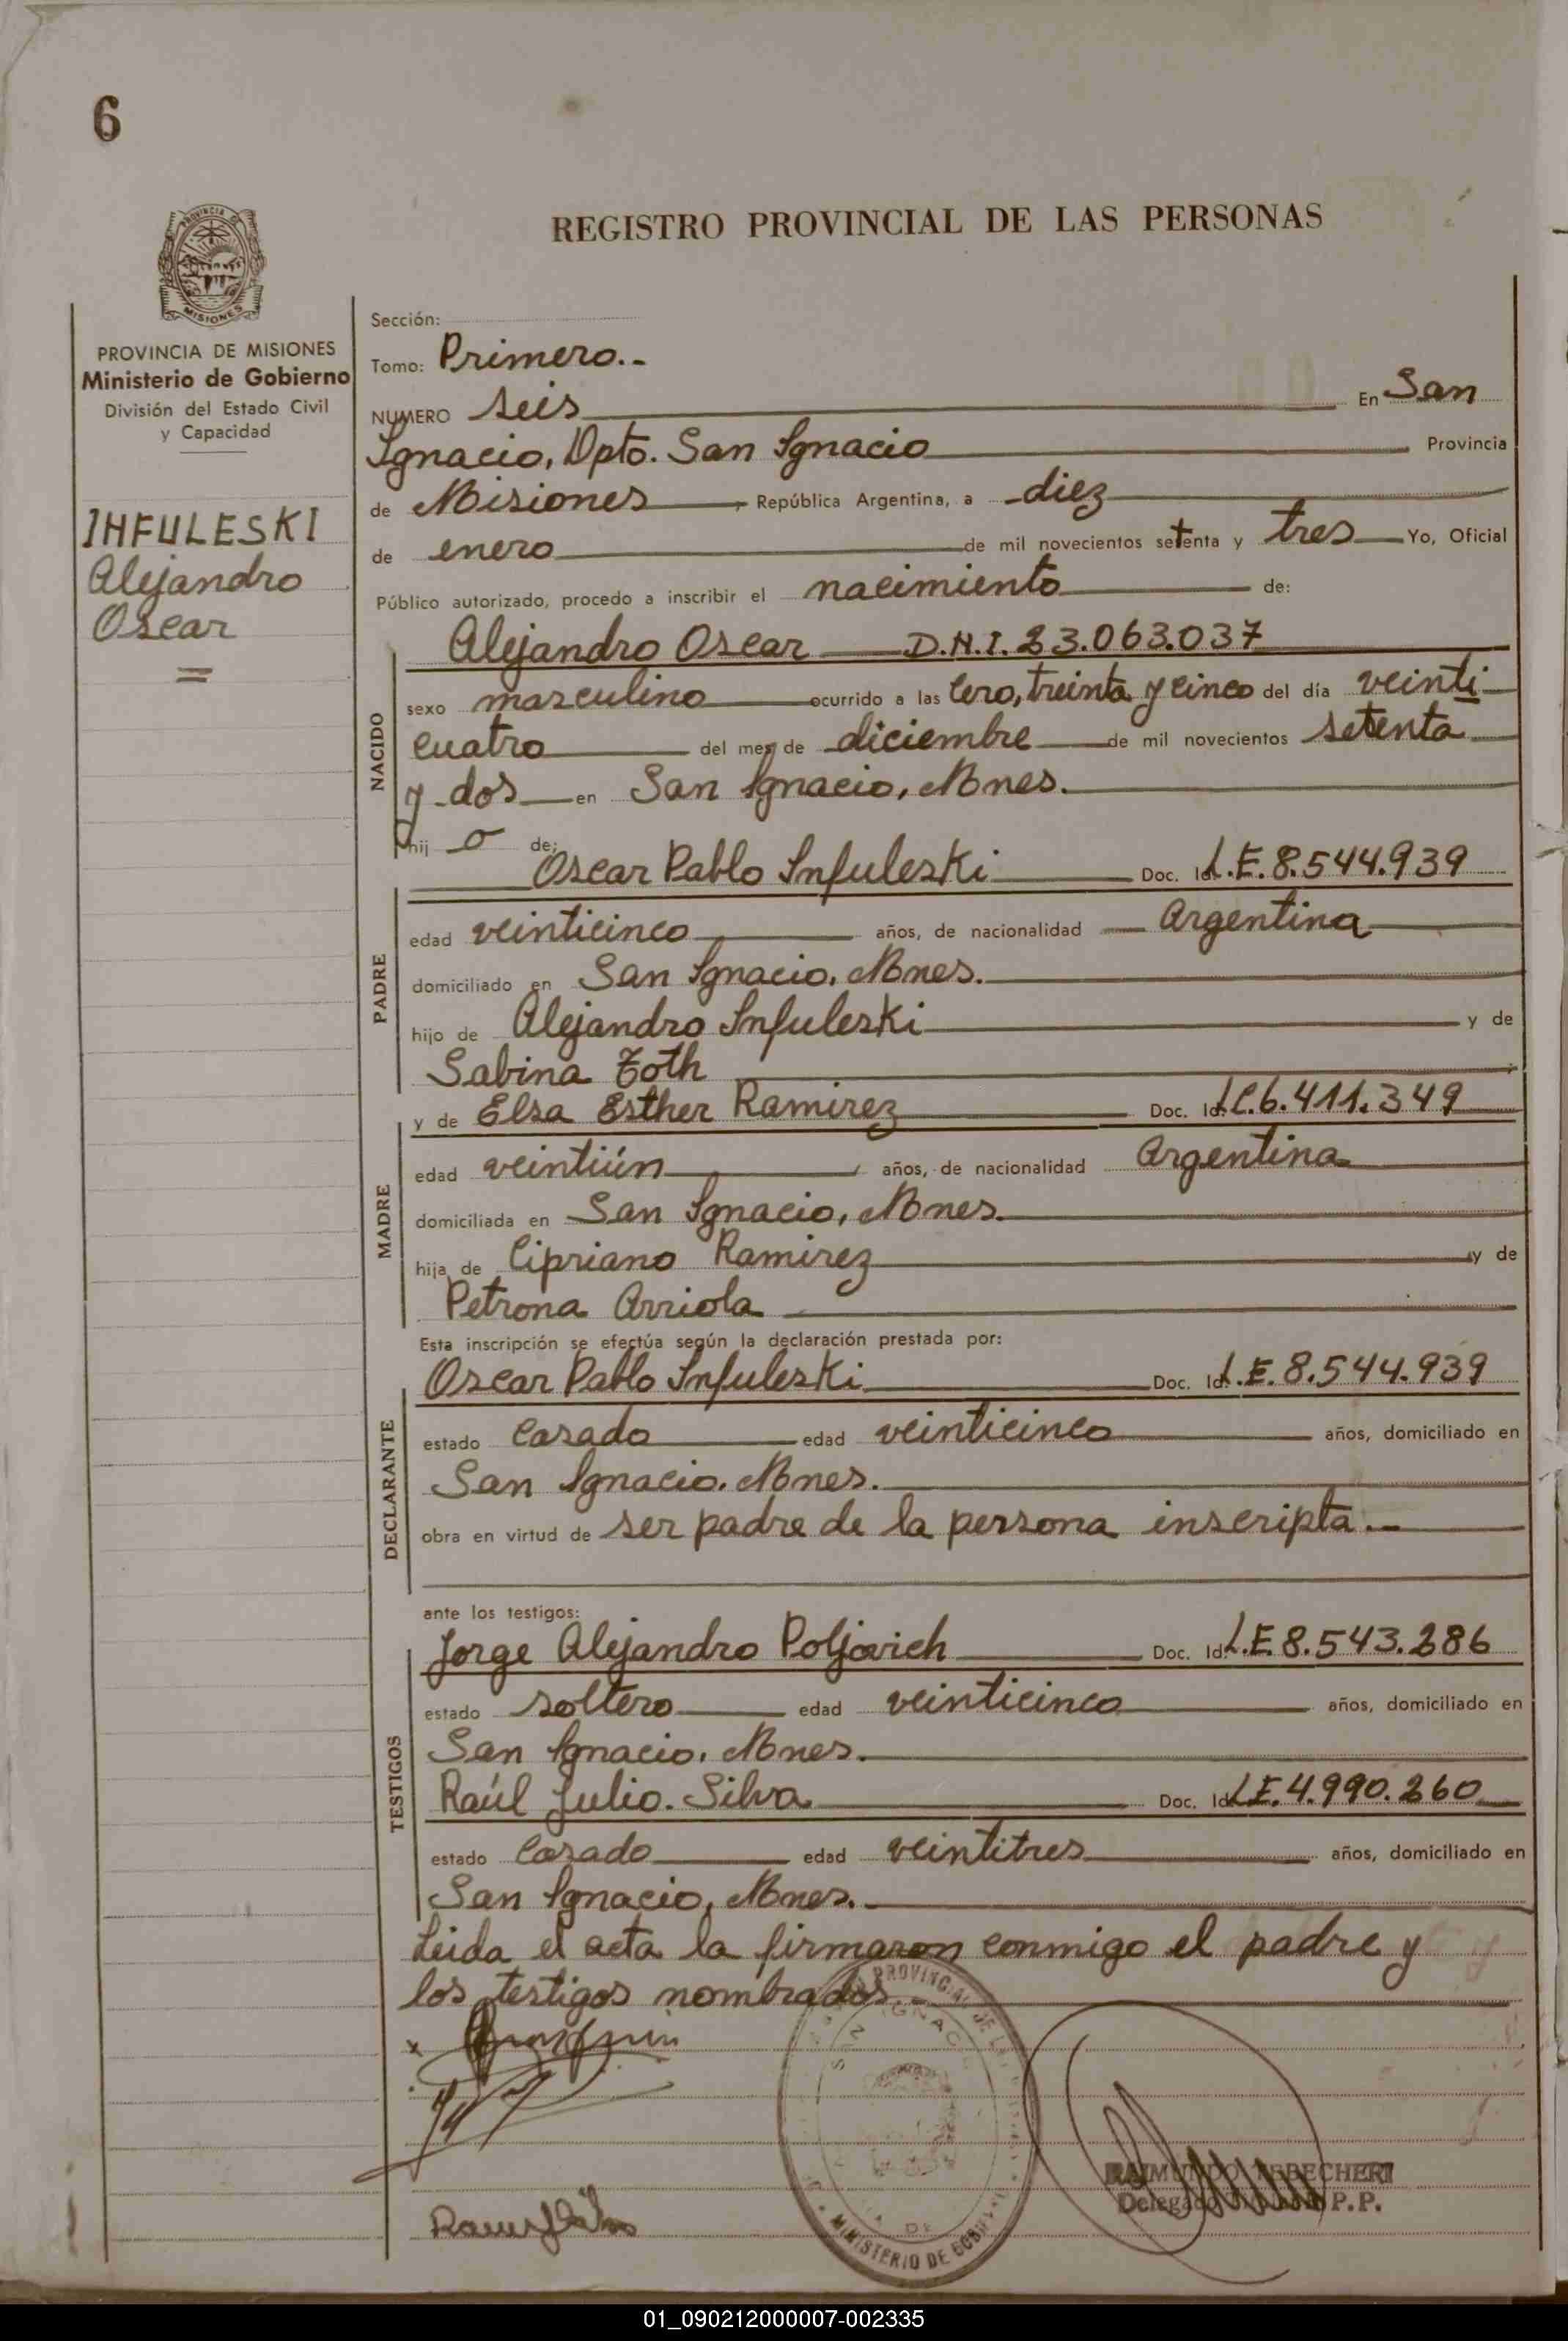 6
PROVINCIA DE
MISIONES
REGISTRO PROVINCIAL DE LAS PERSONAS
PROVINCIA DE MISIONES
Ministerio de Gobierno
División del Estado Civil
y Capacidad
INFULESKI
Alejandro
Oscar
Sección:
Tomo: Primero.-
NUMERO seis En San
Ignacio, Dpto. San Ignacio Provincia
de Misiones, República Argentina, a diez
de enero de mil novecientos setenta y tres Yo, Oficial
Público autorizado, procedo a inscribir el nacimiento de:
Alejandro Oscar D.N.I. 23.063.037
NACIDO
sexo masculino ocurrido a las Cero, treinta y cinco del día veinti
cuatro del mes de diciembre de mil novecientos setenta
y dos en San Ignacio, Mnes.
hij o de:
Oscar Pablo Infuleski Doc. Id. L.E. 8.544.939
PADRE
edad veinticinco años, de nacionalidad Argentina
domiciliado en San Ignacio, Mnes.
hijo de Alejandro Infuleski y de
Sabina Toth
y de Elsa Esther Ramirez Doc. Id. L.C. 6.411.349
MADRE
edad veintiún años, de nacionalidad Argentina
domiciliada en San Ignacio, Mnes.
hija de Cipriano Ramirez y de
Petrona Arriola
Esta inscripción se efectúa según la declaración prestada por:
Oscar Pablo Infuleski Doc. Id. L.E. 8.544.939
DECLARANTE
estado Casado edad veinticinco años, domiciliado en
San Ignacio. Mnes.
obra en virtud de ser padre de la persona inscripta.-
ante los testigos:
Jorge Alejandro Poljovich Doc. Id. L.E. 8.543.286
TESTIGOS
estado soltero edad veinticinco años, domiciliado en
San Ignacio. Mnes.
Raúl Julio. Silva Doc. Id. L.E. 4.990.260
estado Casado edad veintitres años, domiciliado en
San Ignacio, Mnes.
Leida el acta la firmaron conmigo el padre y
los testigos nombrados
PROVINCIAL DE
MINISTERIO DE
RAIMUNDO
Delegado P.P.
01_090212000007-002335